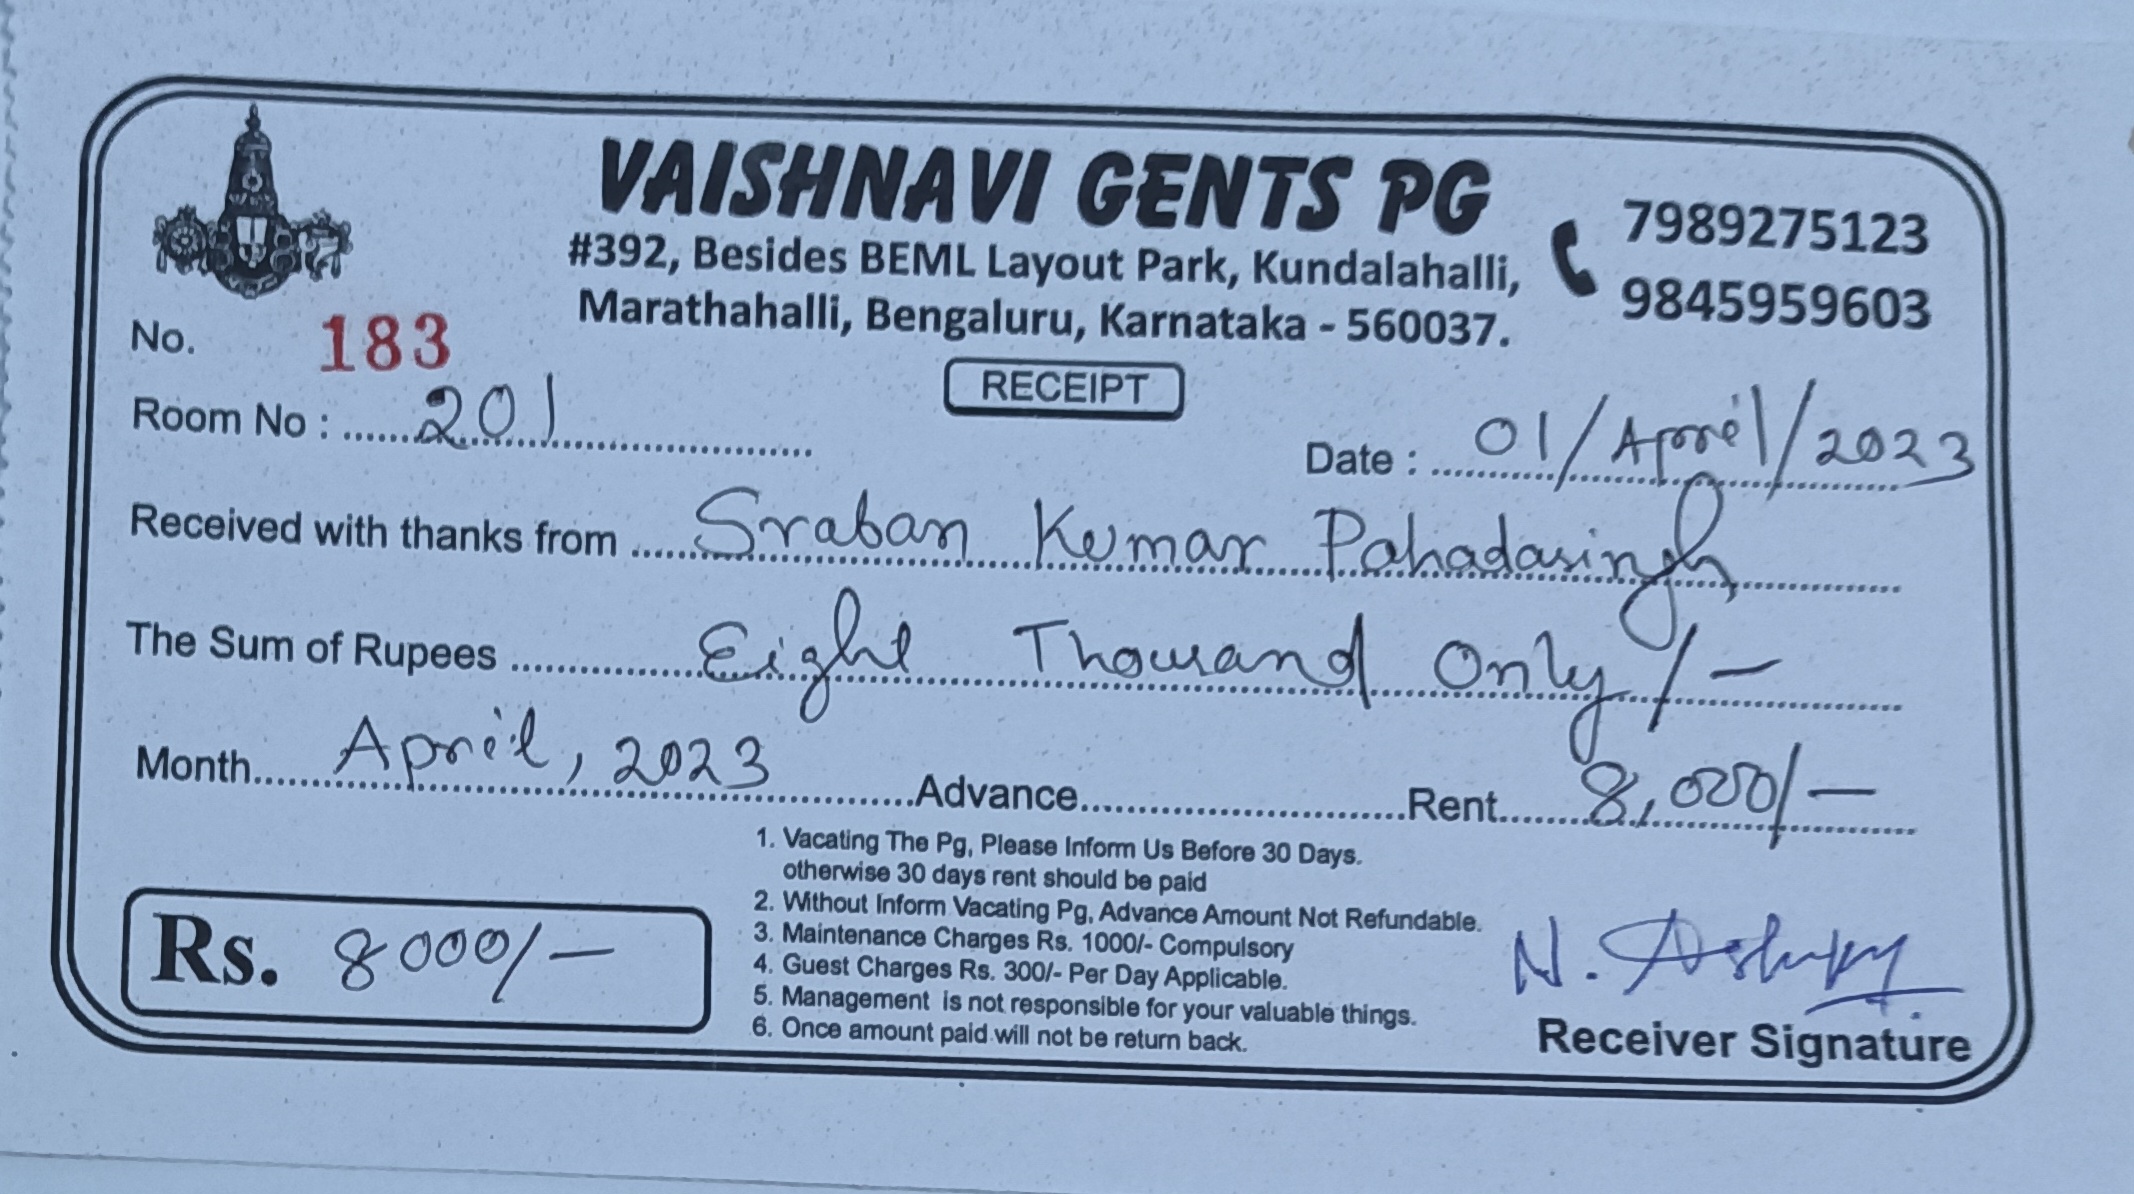 VAISHNAVI GENTS PG
#392, Besides BEML Layout Park, Kundalahalli,
Marathahalli, Bengaluru, Karnataka - 560037.
7989275123
9845959603
No. 183
RECEIPT
Room No : 201
Date : 01/April/2023
Received with thanks from Sraban Kumar Pahadasingh
The Sum of Rupees Eight Thousand Only/-
Month April, 2023 Advance Rent 8,000/-
1. Vacating The Pg, Please Inform Us Before 30 Days.
otherwise 30 days rent should be paid
2. Without Inform Vacating Pg, Advance Amount Not Refundable.
3. Maintenance Charges Rs. 1000/- Compulsory
4. Guest Charges Rs. 300/- Per Day Applicable.
5. Management is not responsible for your valuable things.
6. Once amount paid will not be return back.
Rs. 8000/-
N.
Receiver Signature